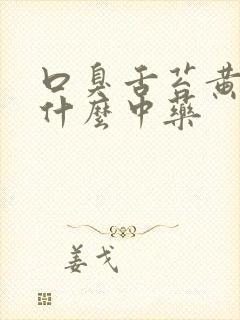 口臭舌苔黄
什麼中药
姜戈